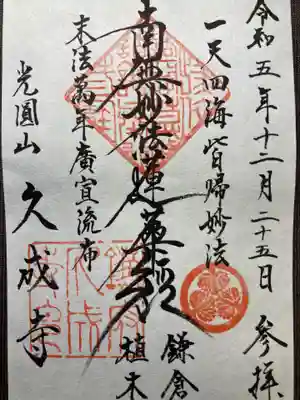 令和五年十二月二十五日
参拝
一天四海皆帰妙法
鎌倉
植木
南無妙法蓮華経
末法萬年廣宣流布
光圓山
久成寺